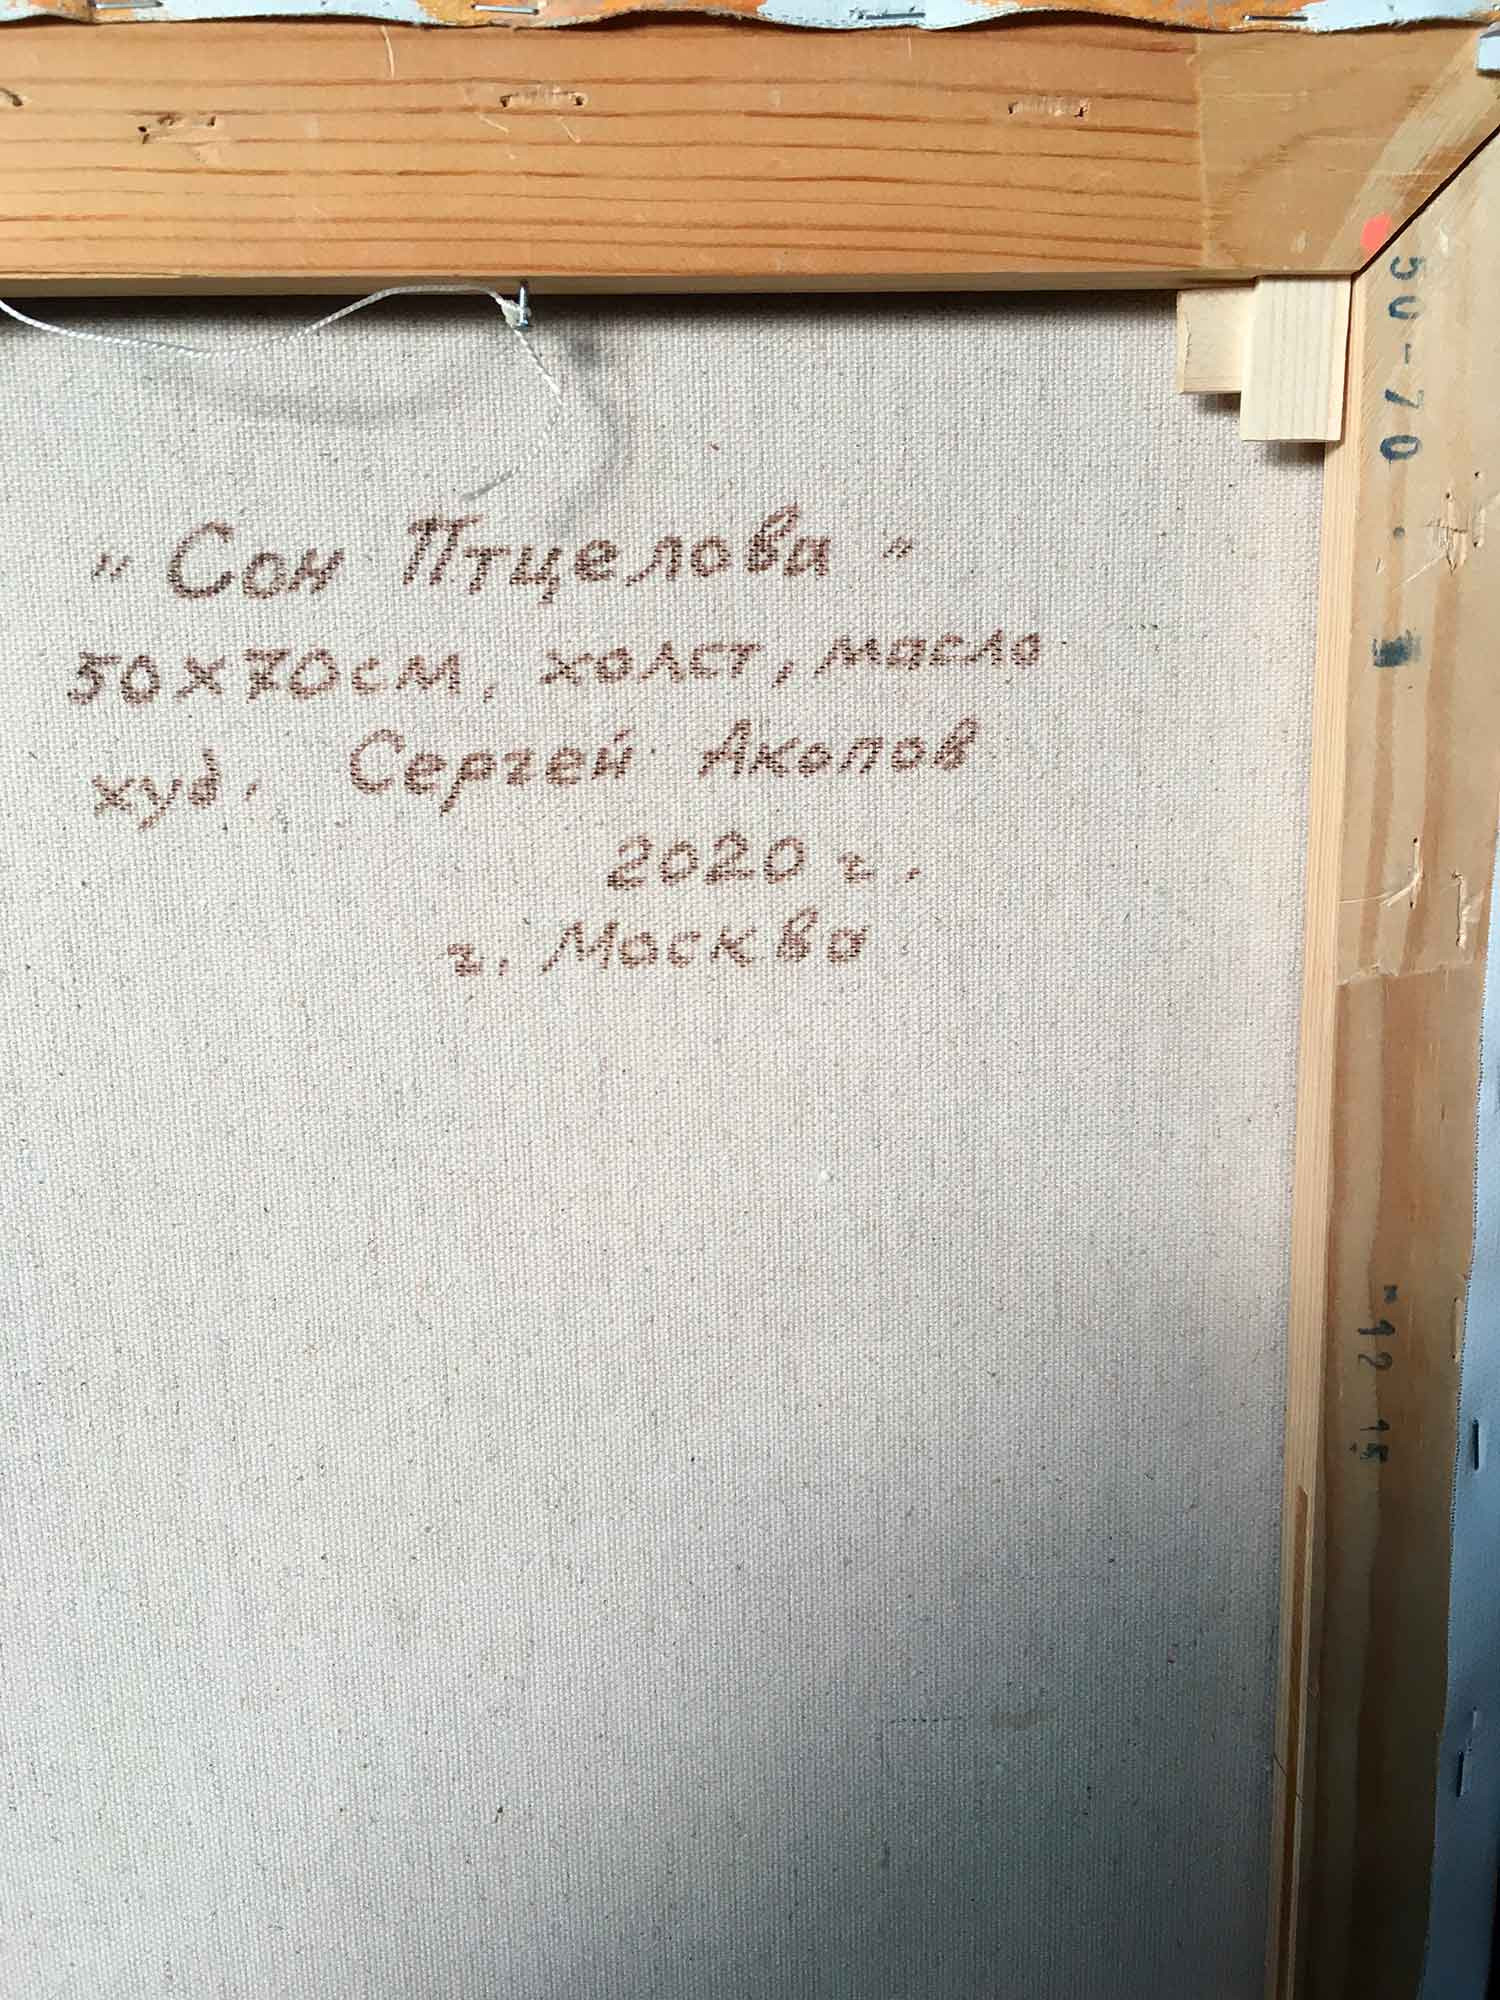 "Сон Птцелова"
50х70см, холст, масло
худ. Сергей Акопов
2020 г.
г. Москва
50-70
12 15